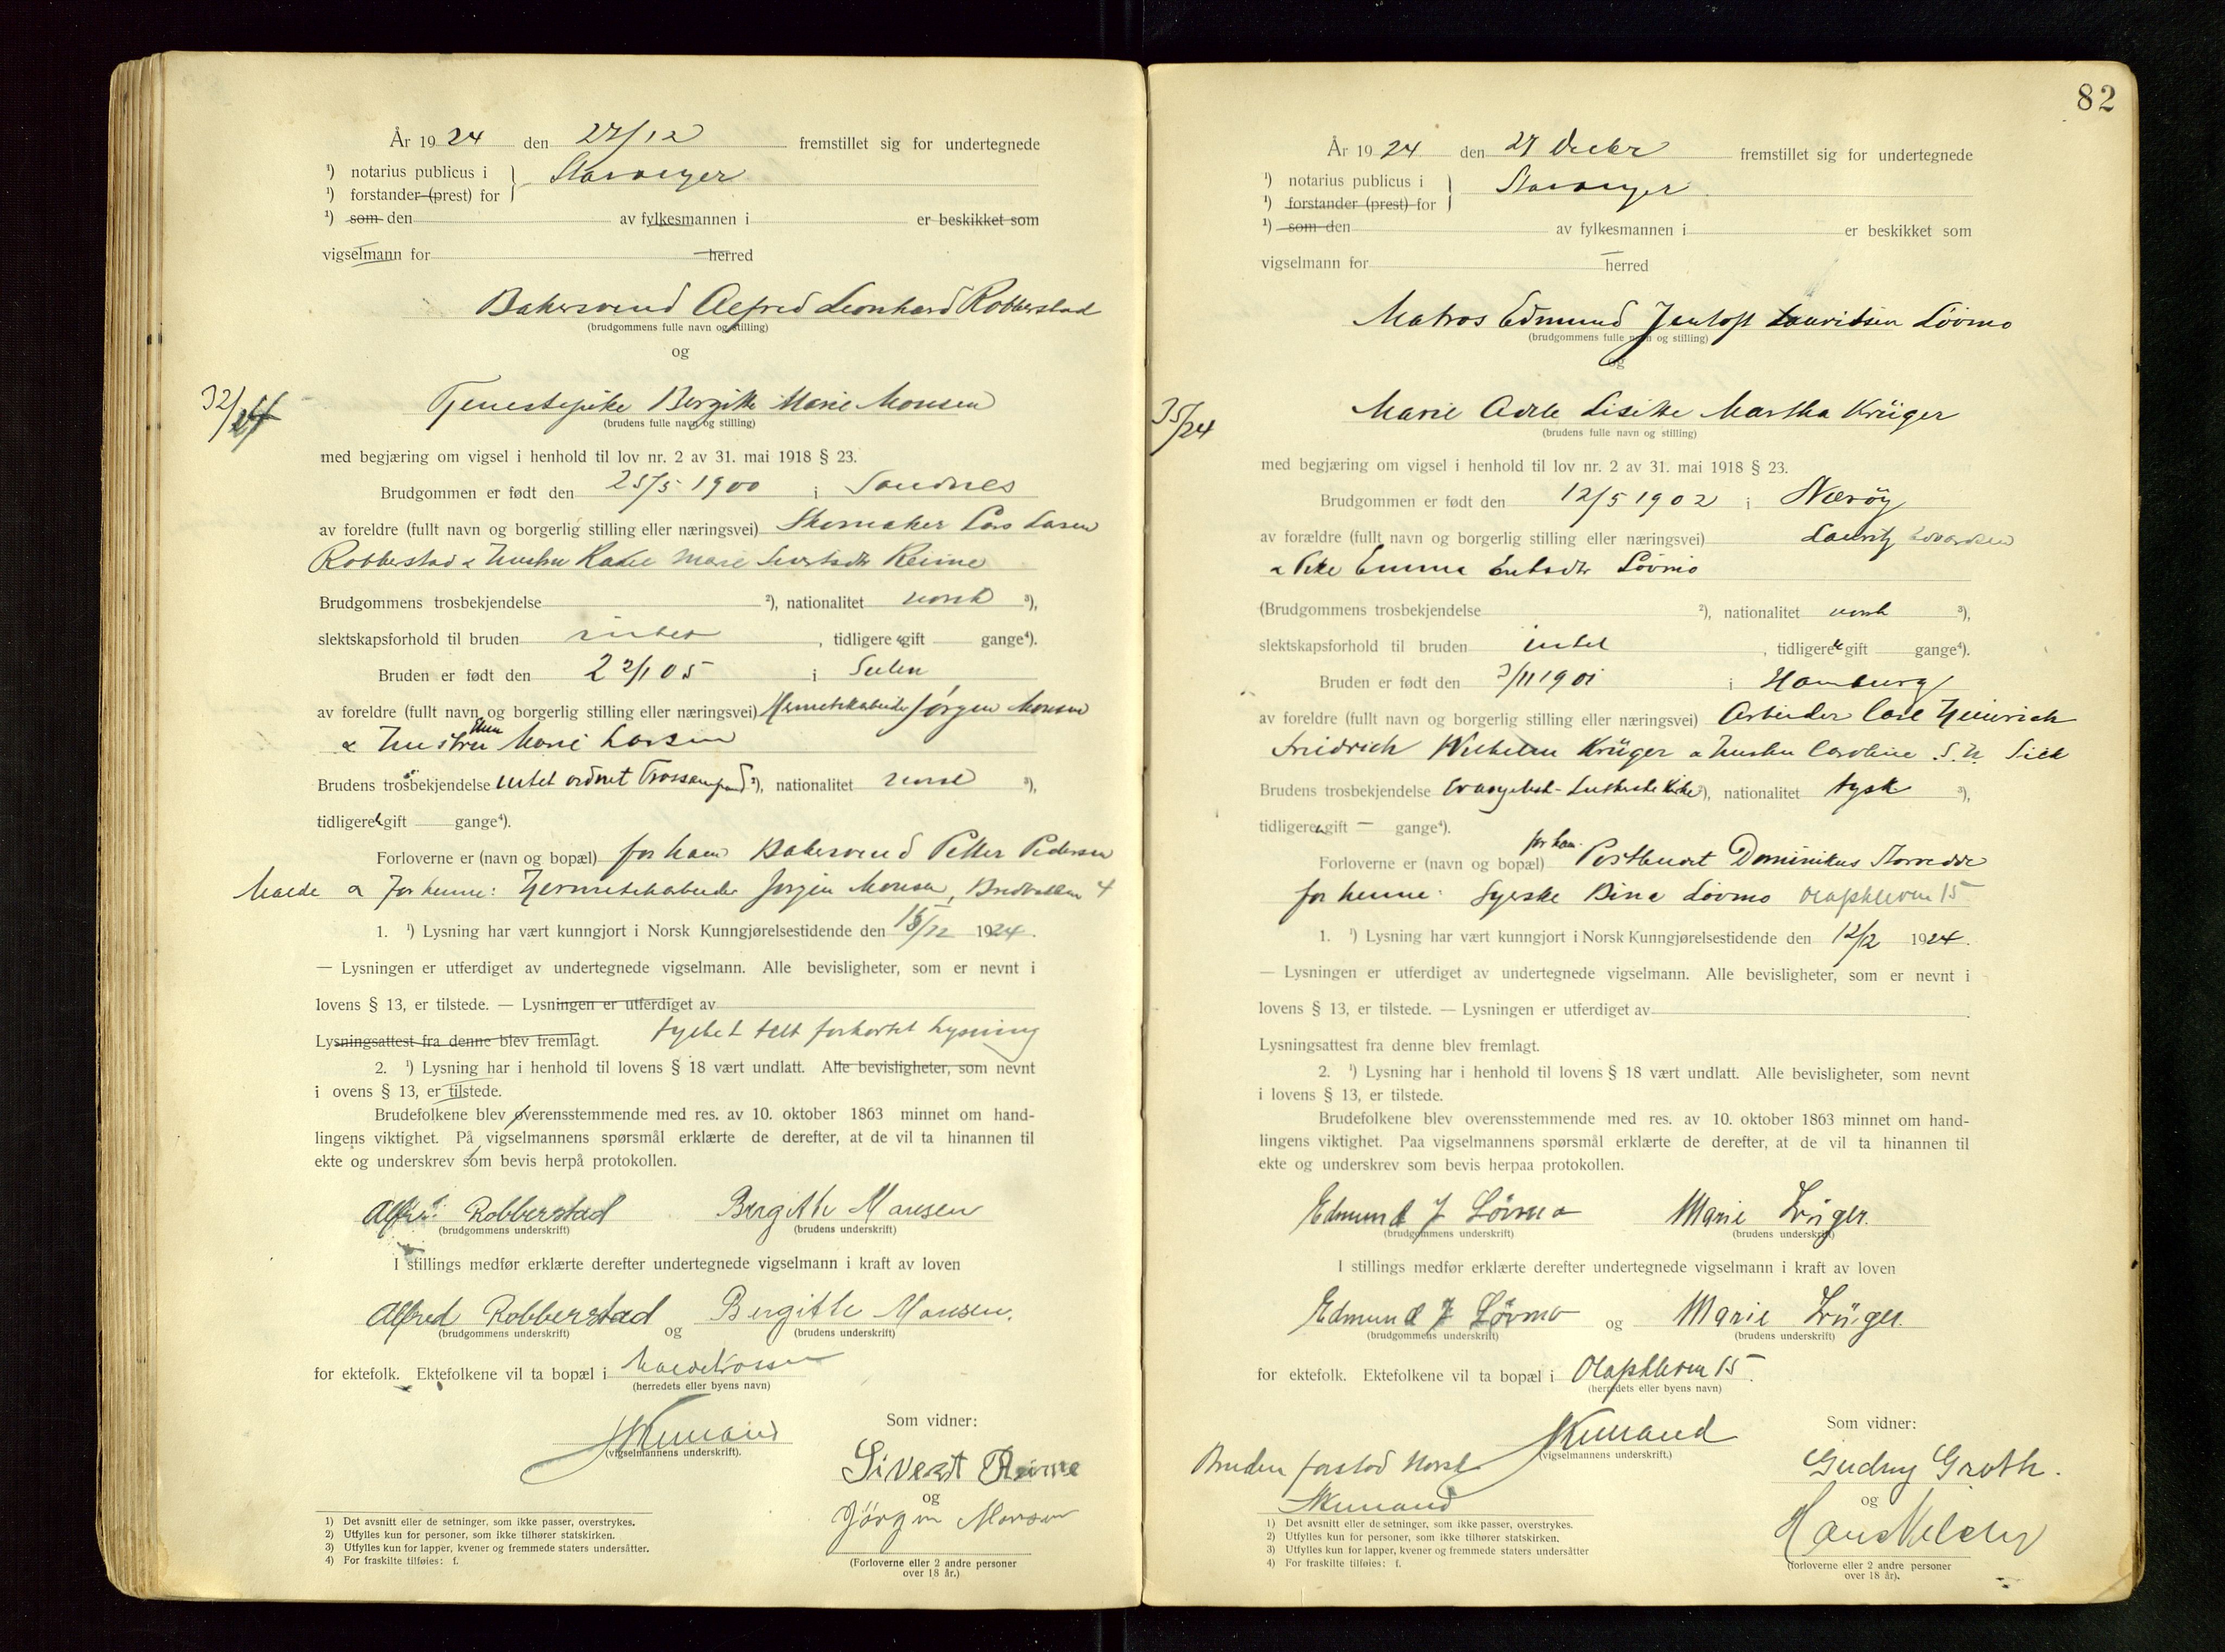 År 1924 den 27/12 fremstillet sig for undertegnede
¹) notarius publicus i } Stavanger
¹) forstander (prest) for
¹) som den av fylkesmannen i er beskikket som
vigselmann for herred
Bakersvend Alfred Leonhard Robberstad
(brudgommens fulle navn og stilling)
og
32/24
Tjenestepike Bergitte Marie Monsen
(brudens fulle navn og stilling)
med begjæring om vigsel i henhold til lov nr. 2 av 31. mai 1918 § 23.
Brudgommen er født den 25/5 1900 i Sandnes
av foreldre (fullt navn og borgerlig stilling eller næringsvei) Skomaker Lars Larsen
Robberstad & hustru Marie Reime
Brudgommens trosbekjendelse ²), nationalitet norsk ³),
slektskapsforhold til bruden intet, tidligere gift gange⁴).
Bruden er født den 22/1 05 i
av foreldre (fullt navn og borgerlig stilling eller næringsvei) Hermetikarbeider Jørgen Monsen
& hustru Marie Larsen
Brudens trosbekjendelse intet ordnet Trossamfund ²), nationalitet norsk ³),
tidligere gift gange⁴).
Forloverne er (navn og bopæl) for ham Bakersvend Petter Pedersen
Malde & for henne: Hermetikarbeider Jørgen Monsen, Bredbakken 4
1. ¹) Lysning har vært kunngjort i Norsk Kunngjørelsestidende den /12 1924.
— Lysningen er utferdiget av undertegnede vigselmann. Alle bevisligheter, som er nevnt i
lovens § 13, er tilstede. — Lysningen er utferdiget av
Lysningsattest fra denne blev fremlagt. forkortet lysning
2. ¹) Lysning har i henhold til lovens § 18 vært undlatt. Alle bevisligheter, som nevnt
i ovens § 13, er tilstede.
Brudefolkene blev overensstemmende med res. av 10. oktober 1863 minnet om hand-
lingens viktighet. På vigselmannens spørsmål erklærte de derefter, at de vil ta hinannen til
ekte og underskrev som bevis herpå protokollen.
Alfred Robberstad Bergitte Monsen
(brudgommens underskrift) (brudens underskrift)
I stillings medfør erklærte derefter undertegnede vigselmann i kraft av loven
Alfred Robberstad og Bergitte Monsen.
(brudgommens underskrift) (brudens underskrift)
for ektefolk. Ektefolkene vil ta bopæl i
(herredets eller byens navn)
Som vidner:
(vigselmannens underskrift).
Sivert Reime
og
Jørgen Monsen
(Forloverne eller 2 andre personer
over 18 år.)
1) Det avsnitt eller de setninger, som ikke passer, overstrykes.
2) Utfylles kun for personer, som ikke tilhører statskirken.
3) Utfylles kun for lapper, kvener og fremmede staters undersåtter.
4) For fraskilte tilføies: f.
82
År 1924 den 27 Decbr fremstillet sig for undertegnede
¹) notarius publicus i } Stavanger
¹) forstander (prest) for
¹) som den av fylkesmannen i er beskikket som
vigselmann for herred
Matros Edmund Jentoft Lauritsen Lövmo
(brudgommens fulle navn og stilling)
og
35/24
Marie Adele Lisette Martha Krüger
(brudens fulle navn og stilling)
med begjæring om vigsel i henhold til lov nr. 2 av 31. mai 1918 § 23.
Brudgommen er født den 12/5 1902 i Næröy
av forældre (fullt navn og borgerlig stilling eller næringsvei) Lauritz Edvardsen
& Pike Emma Lövmo
(Brudgommens trosbekjendelse ²), nationalitet norsk ³),
slektskapsforhold til bruden intet, tidligere gift gange⁴).
Bruden er født den 3/11 1901 i Hamburg
av foreldre (fullt navn og borgerlig stilling eller næringsvei) Arbeider Carl Heinrich
Friedrich Wilhelm Krüger & hustru Caroline
Brudens trosbekjendelse Evangelisk-Lutherske Kirke ²), nationalitet tysk ³),
tidligere gift — gange⁴).
Forloverne er (navn og bopæl) for ham: Postbudet Dominikus
for henne: Syerske Bina Lövmo Olafskleven 15
1. ¹) Lysning har vært kunngjort i Norsk Kunngjørelsestidende den 12/12 1924.
— Lysningen er utferdiget av undertegnede vigselmann. Alle bevisligheter, som er nevnt i
lovens § 13, er tilstede. — Lysningen er utferdiget av
Lysningsattest fra denne blev fremlagt.
2. ¹) Lysning har i henhold til lovens § 18 vært undlatt. Alle bevisligheter, som nevnt
i lovens § 13, er tilstede.
Brudefolkene blev overensstemmende med res. av 10. oktober 1863 minnet om hand-
lingens viktighet. Paa vigselmannens spørsmål erklærte de derefter, at de vil ta hinannen til
ekte og underskrev som bevis herpaa protokollen.
Edmund J Lövmo Marie Krüger.
(brudgommens underskrift) (brudens underskrift)
I stillings medfør erklærte derefter undertegnede vigselmann i kraft av loven
Edmund J Lövmo og Marie Krüger.
(brudgommens underskrift) (brudens underskrift)
for ektefolk. Ektefolkene vil ta bopæl i Olafskleven 15.
(herredets eller byens navn)
Som vidner:
(vigselmannens underskrift.)
Bruden forstod Norsk
Gudny Groth.
og
Hans
(forloverne eller 2 andre personer
over 18 år).
1) Det avsnitt eller de setninger, som ikke passer, overstrykes.
2) Utfylles kun for personer, som ikke tilhører statskirken.
3) Utfylles kun for lapper, kvener og fremmede staters undersåtter
4) For fraskilte tilføies: f.